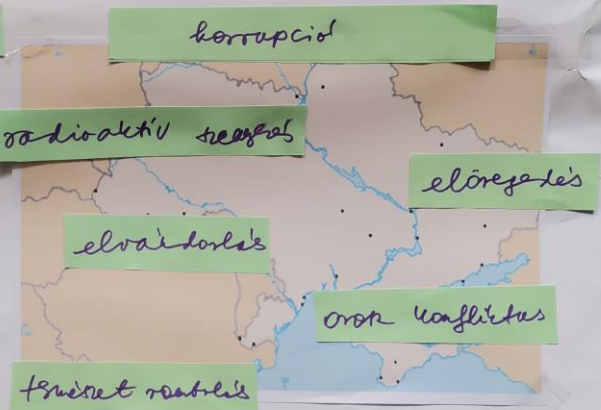 korrupció
radioaktív szennyezés
elöregedés
elvándorlás
orosz konfliktus
természet rombolás